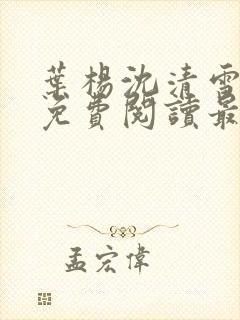 葉楊沈清雪
免費閱讀最
孟宏偉